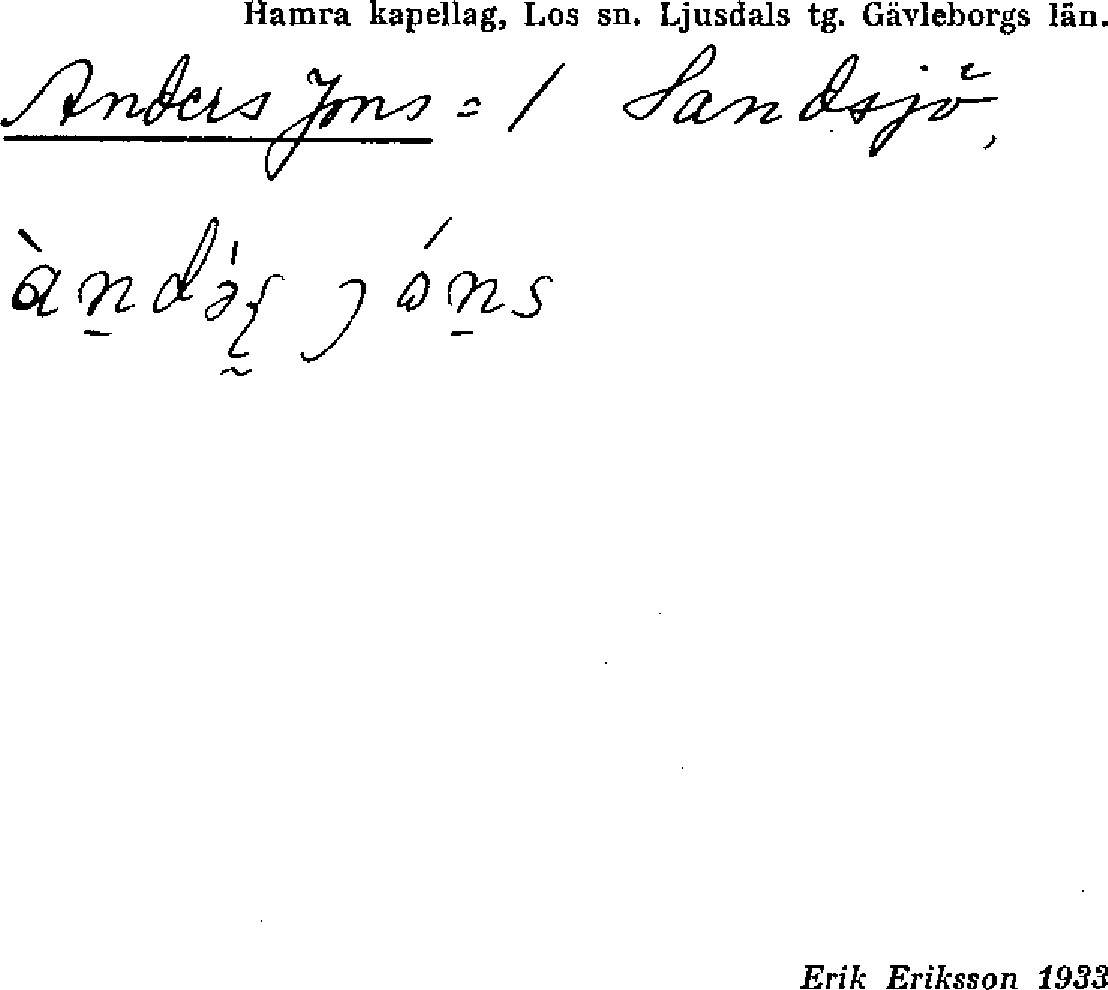 Hamra kapellag, Los sn. Ljusdals tg. Gävleborgs län.
Anders Jons = / Sandsjö,
Erik Eriksson 1933